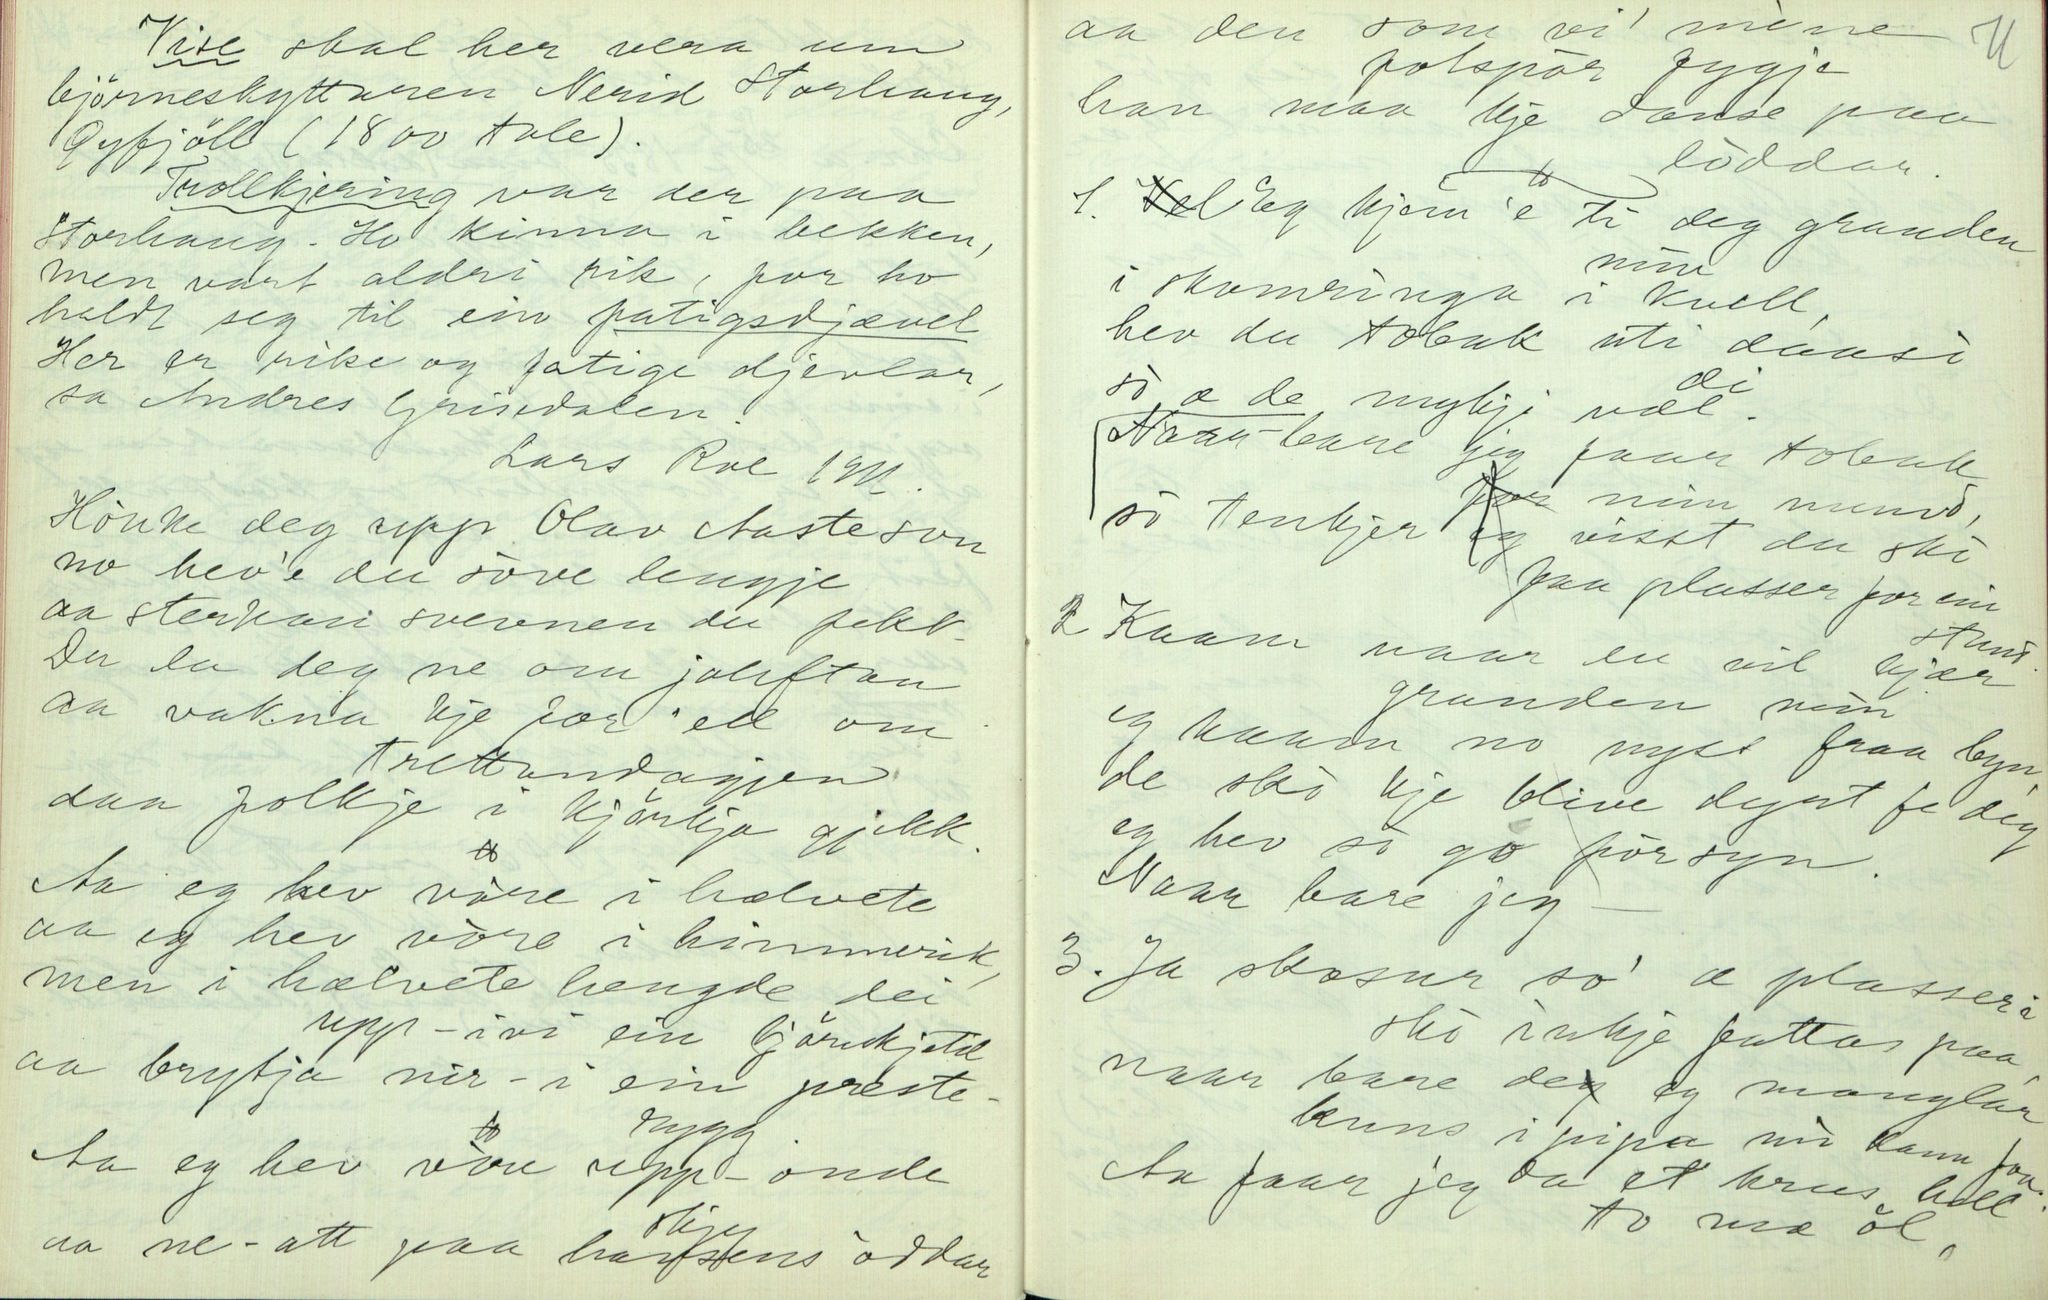 Vise skal her vera um
björneskyttaren Nerid Storhaug,
Gyfjöll (1800 tale).
Trollkjering var der paa
Storhaug. Ho kinna i bekken,
men vart aldri rik, for ho
heldt seg til ein fatigsdjævel
Her er rike og fatige djevlar,
sa Andres Grisedalen.
Lars Roe
Hönke deg upp Olav Aasteson
no hev'e du sòve lengje
aa sterkan svevnen du fekk.
Du la deg ne om joleftan
aa vakna kje för 'ell om
trettandagjen
daa folkje i kjörkja gjekk.
Aa eg hev vòre i hælvete
aa eg hev vòre i himmerik,
men i hælvete hengde dei
upp-ivi ein kjötekjetil
aa brytja nir-i ein preste-
rygg.
Aa eg hev vòre upp-onde
skjey
aa ne-att paa havsens òddar
aa den som vi' mine
fotspòr fygje
han maa kje danse paa
lòddar.
1. Vel Eg kjem 'e ti deg granden
min
i skomringa i kvell,
hev du tobak uti daasi
sò æ de mykji vel.
di
Naar bare jeg faar tobak
for min mund,
sò tenkjer eg visst du skò
faa plasser for ein
stund.
2 Kaam naar du vil kjær
granden min
eg kaam no nyst fraa byn
de skò kje blive dyrt fe dèg
eg hev sò go fòrsyn.
Naar bare jeg —
3. Ja skosur sò' æ plasseri
skò inkje fattas paa,
naar bare deg eg manglar
kuns i pipa mi kann faa.
Aa faar jeg da et krus hell
to mæ öl,